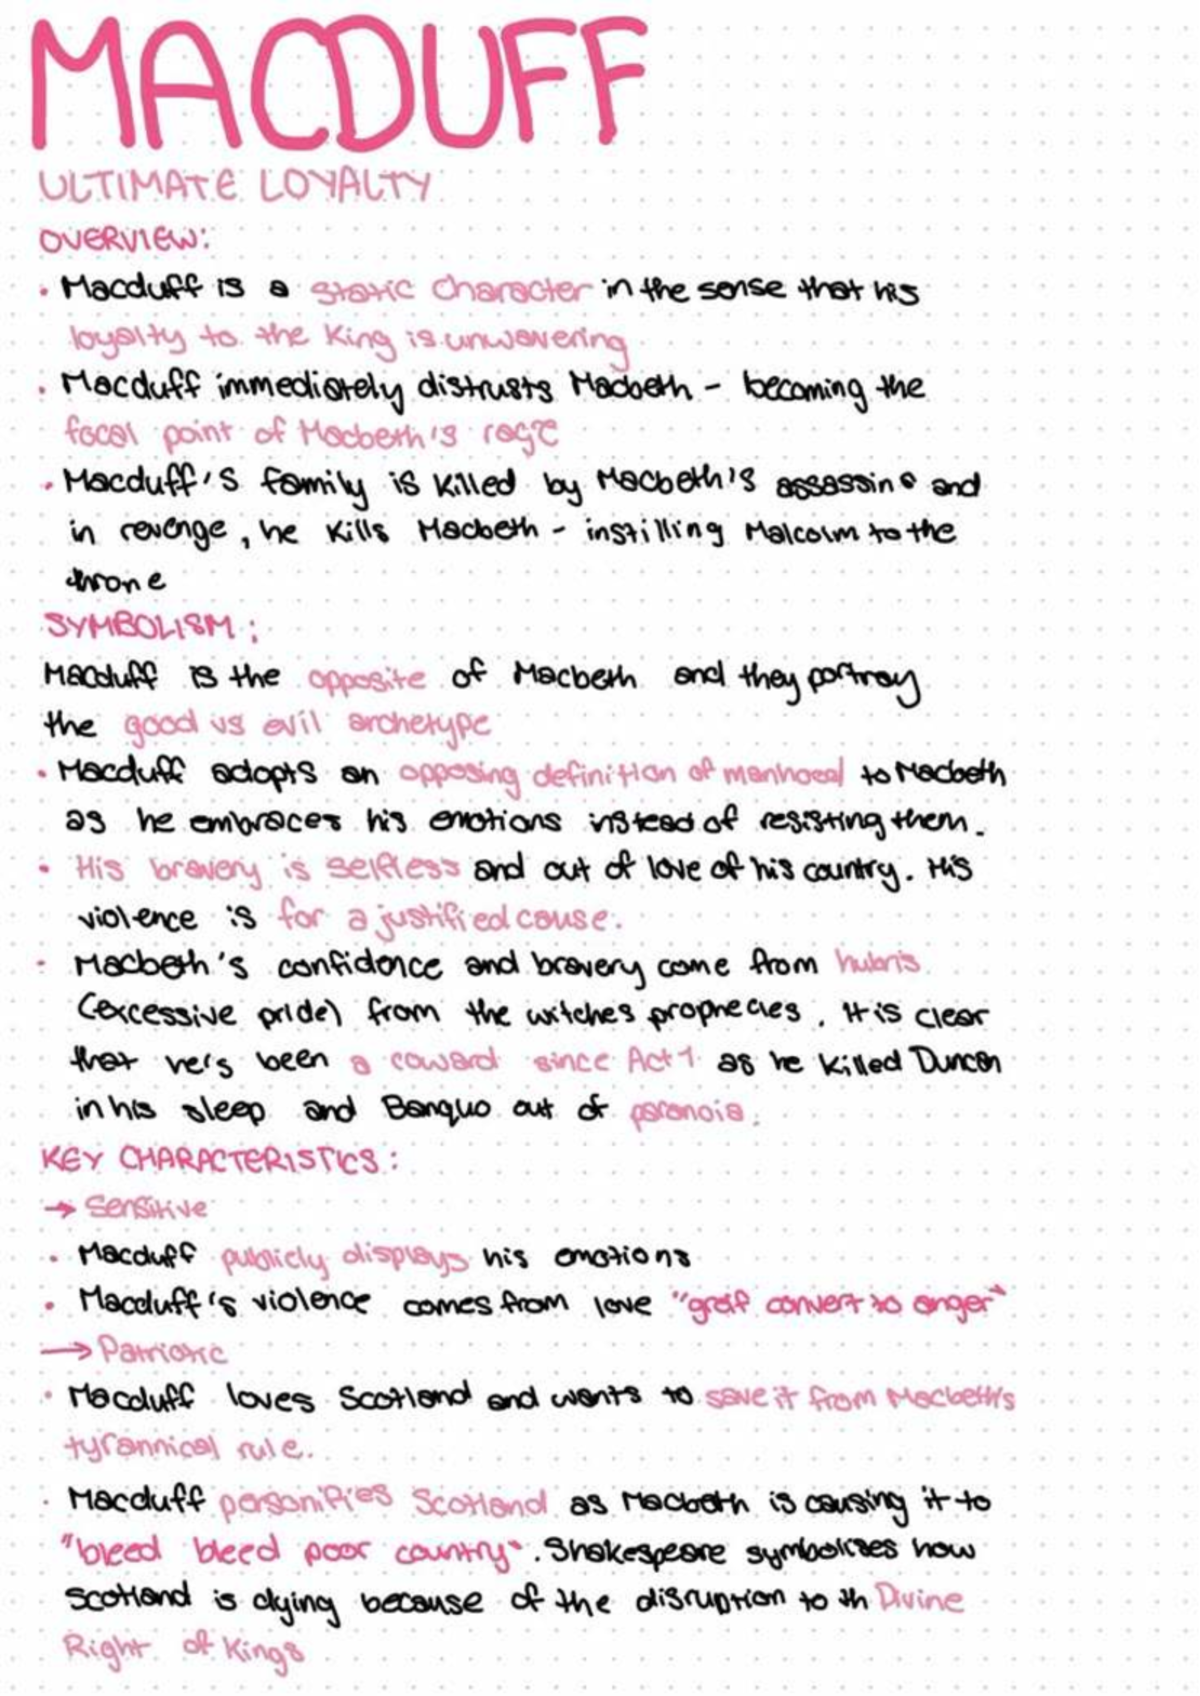 MACDUFF
ULTIMATE LOYALTY
OVERVIEW:
• Macduff is a static character in the sense that his
loyalty to the King is unwavering
• Macduff immediately distrusts Macbeth - becoming the
focal point of Macbeth's rage
• Macduff's family is killed by Macbeth's assassins and
in revenge, he kills Macbeth - instilling Malcolm to the
throne
SYMBOLISM:
Macduff is the opposite of Macbeth and they portray
the good vs evil archetype
• Macduff adopts an opposing definition of manhood to Macbeth
as he embraces his emotions instead of resisting them.
• His bravery is selfless and out of love of his country. His
violence is for a justified cause.
• Macbeth's confidence and bravery come from hubris
(excessive pride) from the witches prophecies. It is clear
that he's been a coward since Act 1 as he killed Duncan
in his sleep and Banquo out of paranoia.
KEY CHARACTERISTICS:
→ Sensitive
• Macduff publicly displays his emotions
• Macduff's violence comes from love "greif convert to anger"
→ Patriotic
• Macduff loves Scotland and wants to save it from Macbeth's
tyrannical rule.
• Macduff personifies Scotland as Macbeth is causing it to
"bleed bleed poor country". Shakespeare symbolises how
Scotland is dying because of the disruption to th Divine
Right of Kings